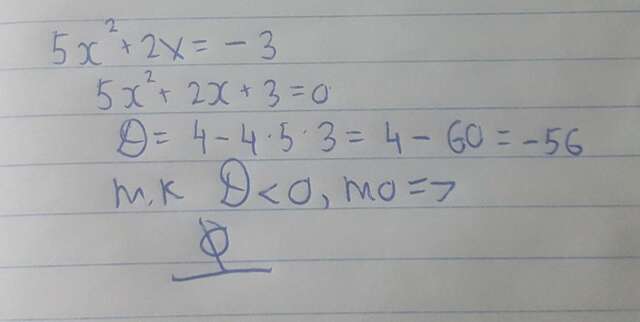 5x² + 2x = -3
5x² + 2x + 3 = 0
D = 4 - 4 · 5 · 3 = 4 - 60 = -56
т.к D < 0, то =>
∅